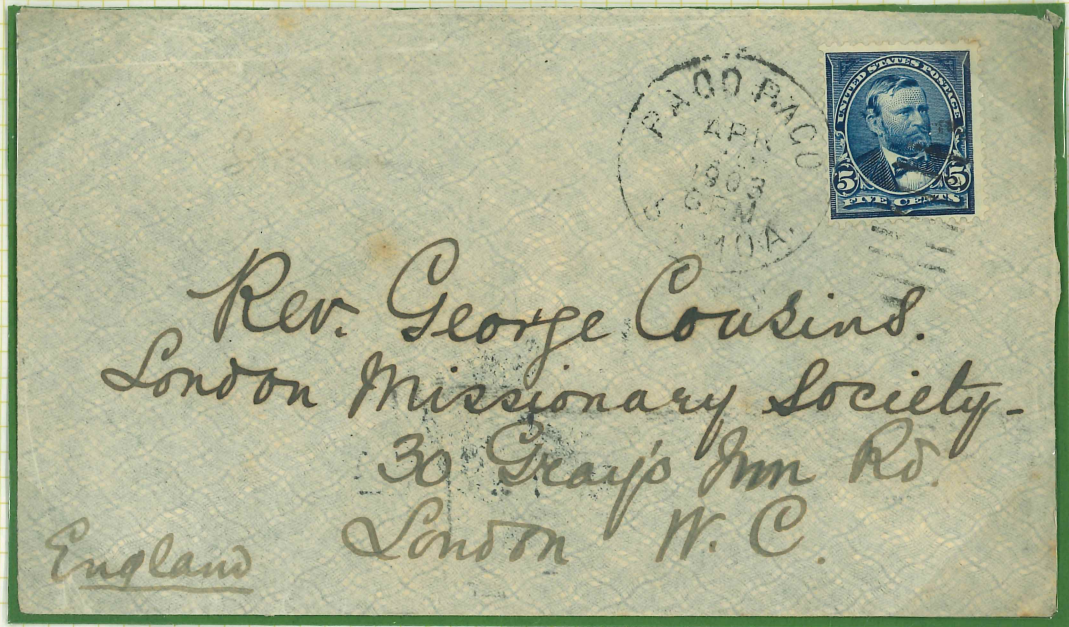 PAGO PAGO
APR
1903
6 PM
SAMOA.
UNITED STATES POSTAGE
5 5
FIVE CENTS
Rev. George Cousins.
London Missionary Society-
30 Gray's Inn Rd.
London W. C.
England